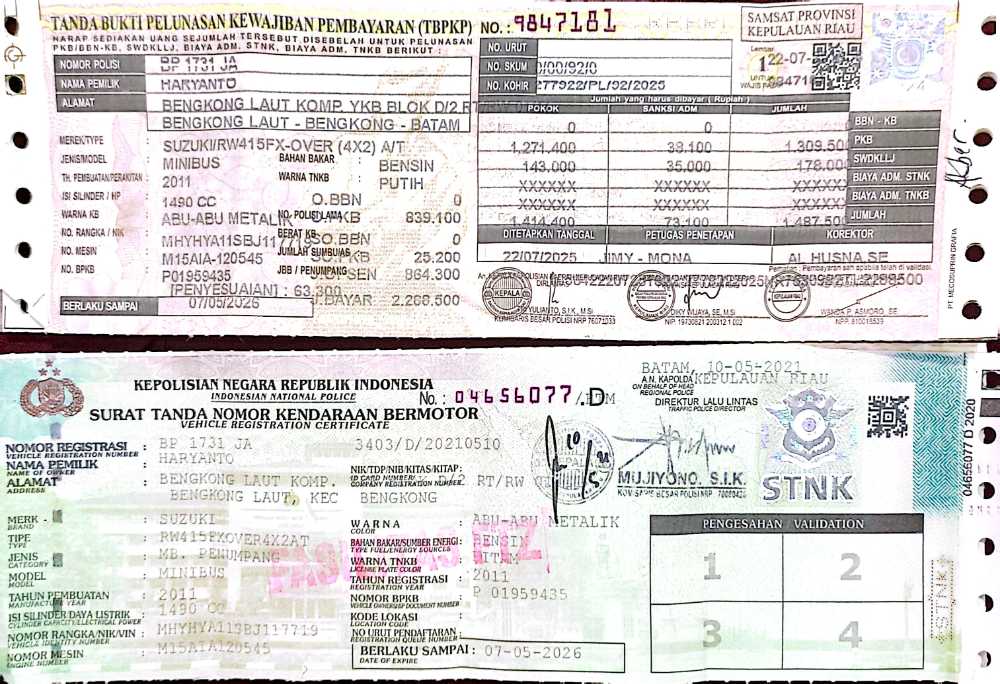 TANDA BUKTI PELUNASAN KEWAJIBAN PEMBAYARAN (TBPKP) NO.: 9847181
HARAP SEDIAKAN UANG SEJUMLAH TERSEBUT DISEBELAH UNTUK PELUNASAN
PKB/BEN-KB, SWDKLLJ, BIAYA ADM. STNK, BIAYA ADM. TNKB BERIKUT :
SAMSAT PROVINSI
KEPULAUAN RIAU
Lembar
1
UNTUK
WAJIB PAJAK
22-07-
NOMOR POLISI BP 1731 JA
NAMA PEMILIK HARYANTO
ALAMAT BENGKONG LAUT KOMP. YKB BLOK D/2 RT/RW
BENGKONG LAUT - BENGKONG - BATAM
NO. URUT
NO. SKUM /00/92/0
NO. KOHIR 277922/PL/92/2025
Jumlah yang harus dibayar ( Rupiah )
POKOK SANKSI ADM JUMLAH
0 0 0 BBN - KB
1,271,400 38,100 1,309,500 PKB
143,000 35,000 178,000 SWDKLLJ
XXXXXX XXXXXX XXXXXX BIAYA ADM. STNK
XXXXXX XXXXXX XXXXXX BIAYA ADM. TNKB
1,414,400 73,100 1,487,500 JUMLAH
MEREK/TYPE SUZUKI/RW415FX-OVER (4X2) A/T
JENIS/MODEL MINIBUS BAHAN BAKAR BENSIN
TH. PEMBUATAN/PERAKITAN 2011 WARNA TNKB PUTIH
ISI SILINDER / HP 1490 CC O.BBN 0
WARNA KB ABU-ABU METALIK NO. POLISI LAMA KB 839.100
NO. RANGKA / NIK MHYHYA11SBJ117719 BERAT KB SO.BBN 0
NO. MESIN M15AIA-120545 JUMLAH SUMBU/AS KB 25.200
NO. BPKB P01959435 JBB / PENUMPANG SEN 864.300
[PENYESUAIAN] : 63,300 J.BAYAR 2.288.500
BERLAKU SAMPAI 07/05/2026
DITETAPKAN TANGGAL PETUGAS PENETAPAN KOREKTOR
22/07/2025 JIMY - MONA AL HUSNA,SE
Pembayaran sah apabila telah di validasi
KEPALA
YULIANTO, S.I.K., M.Si
KOMBARIS BESAR POLISI NRP 76071033
DIKY WIJAYA, SE, M.Si
NIP. 19730821 200312 1 002
WANDA P. ASMORO, SE
NPP. 810016533
Akber
KEPOLISIAN NEGARA REPUBLIK INDONESIA
INDONESIAN NATIONAL POLICE
No. : 04656077 / D
SURAT TANDA NOMOR KENDARAAN BERMOTOR
VEHICLE REGISTRATION CERTIFICATE
BATAM, 10-05-2021
A.N. KAPOLDA KEPULAUAN RIAU
ON BEHALF OF HEAD
REGIONAL POLICE
DIREKTUR LALU LINTAS
TRAFFIC POLICE DIRECTOR
MUJIYONO, S.I.K.
STNK
04656077 D 2020
NOMOR REGISTRASI : BP 1731 JA 3403/D/20210510
VEHICLE REGISTRATION NUMBER
NAMA PEMILIK : HARYANTO
NAME OF OWNER
NIK/TDP/NIB/KITAS/KITAP:
ID CARD NUMBER/
COMPANY REGISTRATION NUMBER
ALAMAT : BENGKONG LAUT KOMP. D/2 RT/RW
ADDRESS
BENGKONG LAUT, KEC BENGKONG
MERK : SUZUKI
BRAND
TIPE : RW415FXOVER4X2AT
TYPE
JENIS : MB. PENUMPANG
CATEGORY
MODEL : MINIBUS
MODEL
TAHUN PEMBUATAN : 2011
MANUFACTURE YEAR
ISI SILINDER/DAYA LISTRIK : 1490 CC
CYLINDER CAPACITY/ELECTRICAL POWER
NOMOR RANGKA/NIK/VIN : MHYHYA11SBJ117719
VEHICLE IDENTITY NUMBER
NOMOR MESIN : M15A1A120545
ENGINE NUMBER
WARNA : ABU-ABU METALIK
COLOR
BAHAN BAKAR/SUMBER ENERGI : BENSIN
TYPE FUEL/ENERGY SOURCES
WARNA TNKB : HITAM
LICENSE PLATE COLOR
TAHUN REGISTRASI : 2011
REGISTRATION YEAR
NOMOR BPKB : P 01959435
VEHICLE OWNERSHIP DOCUMENT NUMBER
KODE LOKASI :
LOCATION CODE
NO URUT PENDAFTARAN :
REGISTRATION QUEUE NUMBER
BERLAKU SAMPAI : 07-05-2026
DATE OF EXPIRE
PENGESAHAN VALIDATION
1 2
3 4
*STNK*